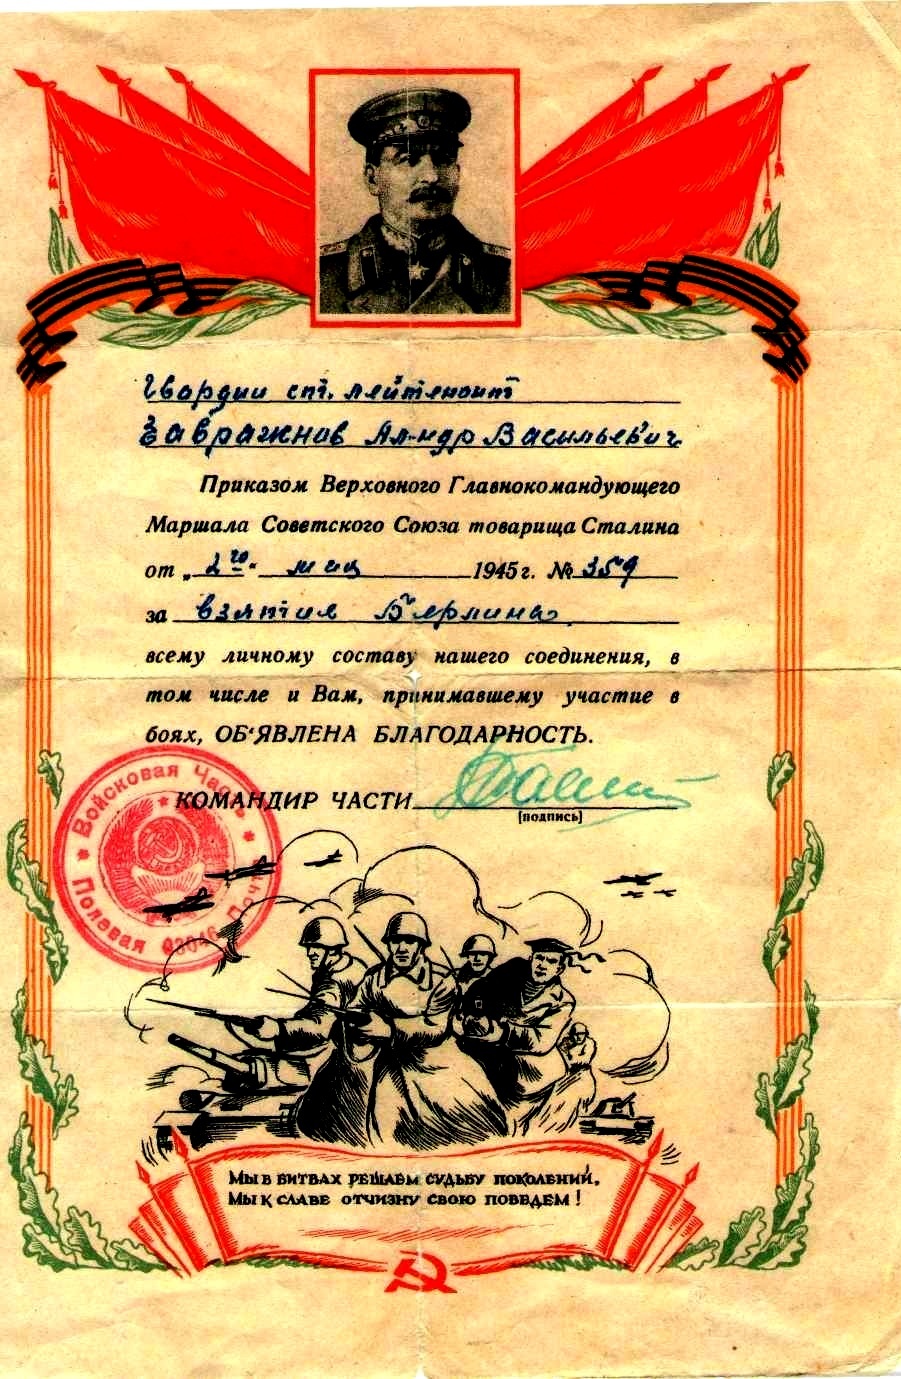 Гвардии ст. лейтенант
Завражнов Ал-ндр Васильевич
Приказом Верховного Главнокомандующего
Маршала Советского Союза товарища Сталина
от „2го“ мая 1945 г. № 359
за взятие Берлина
всему личному составу нашего соединения, в
том числе и Вам, принимавшему участие в
боях, ОБ‘ЯВЛЕНА БЛАГОДАРНОСТЬ.
КОМАНДИР ЧАСТИ
[подпись]
Войсковая Часть
Полевая Почта
МЫ В БИТВАХ РЕШАЕМ СУДЬБУ ПОКОЛЕНИЙ,
МЫ К СЛАВЕ ОТЧИЗНУ СВОЮ ПОВЕДЕМ!